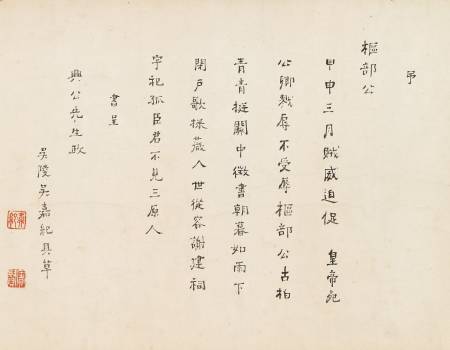 弔
樞部公
甲申三月賊威迫促 皇帝死
公卿戮辱不受辱樞部公古柏
青青挺關中徵書朝暮如雨下
閉戶歌採薇人世從容謝建祠
宇祀孤臣君不見三原人
書呈
興公先生政
吳陵吳嘉紀具草